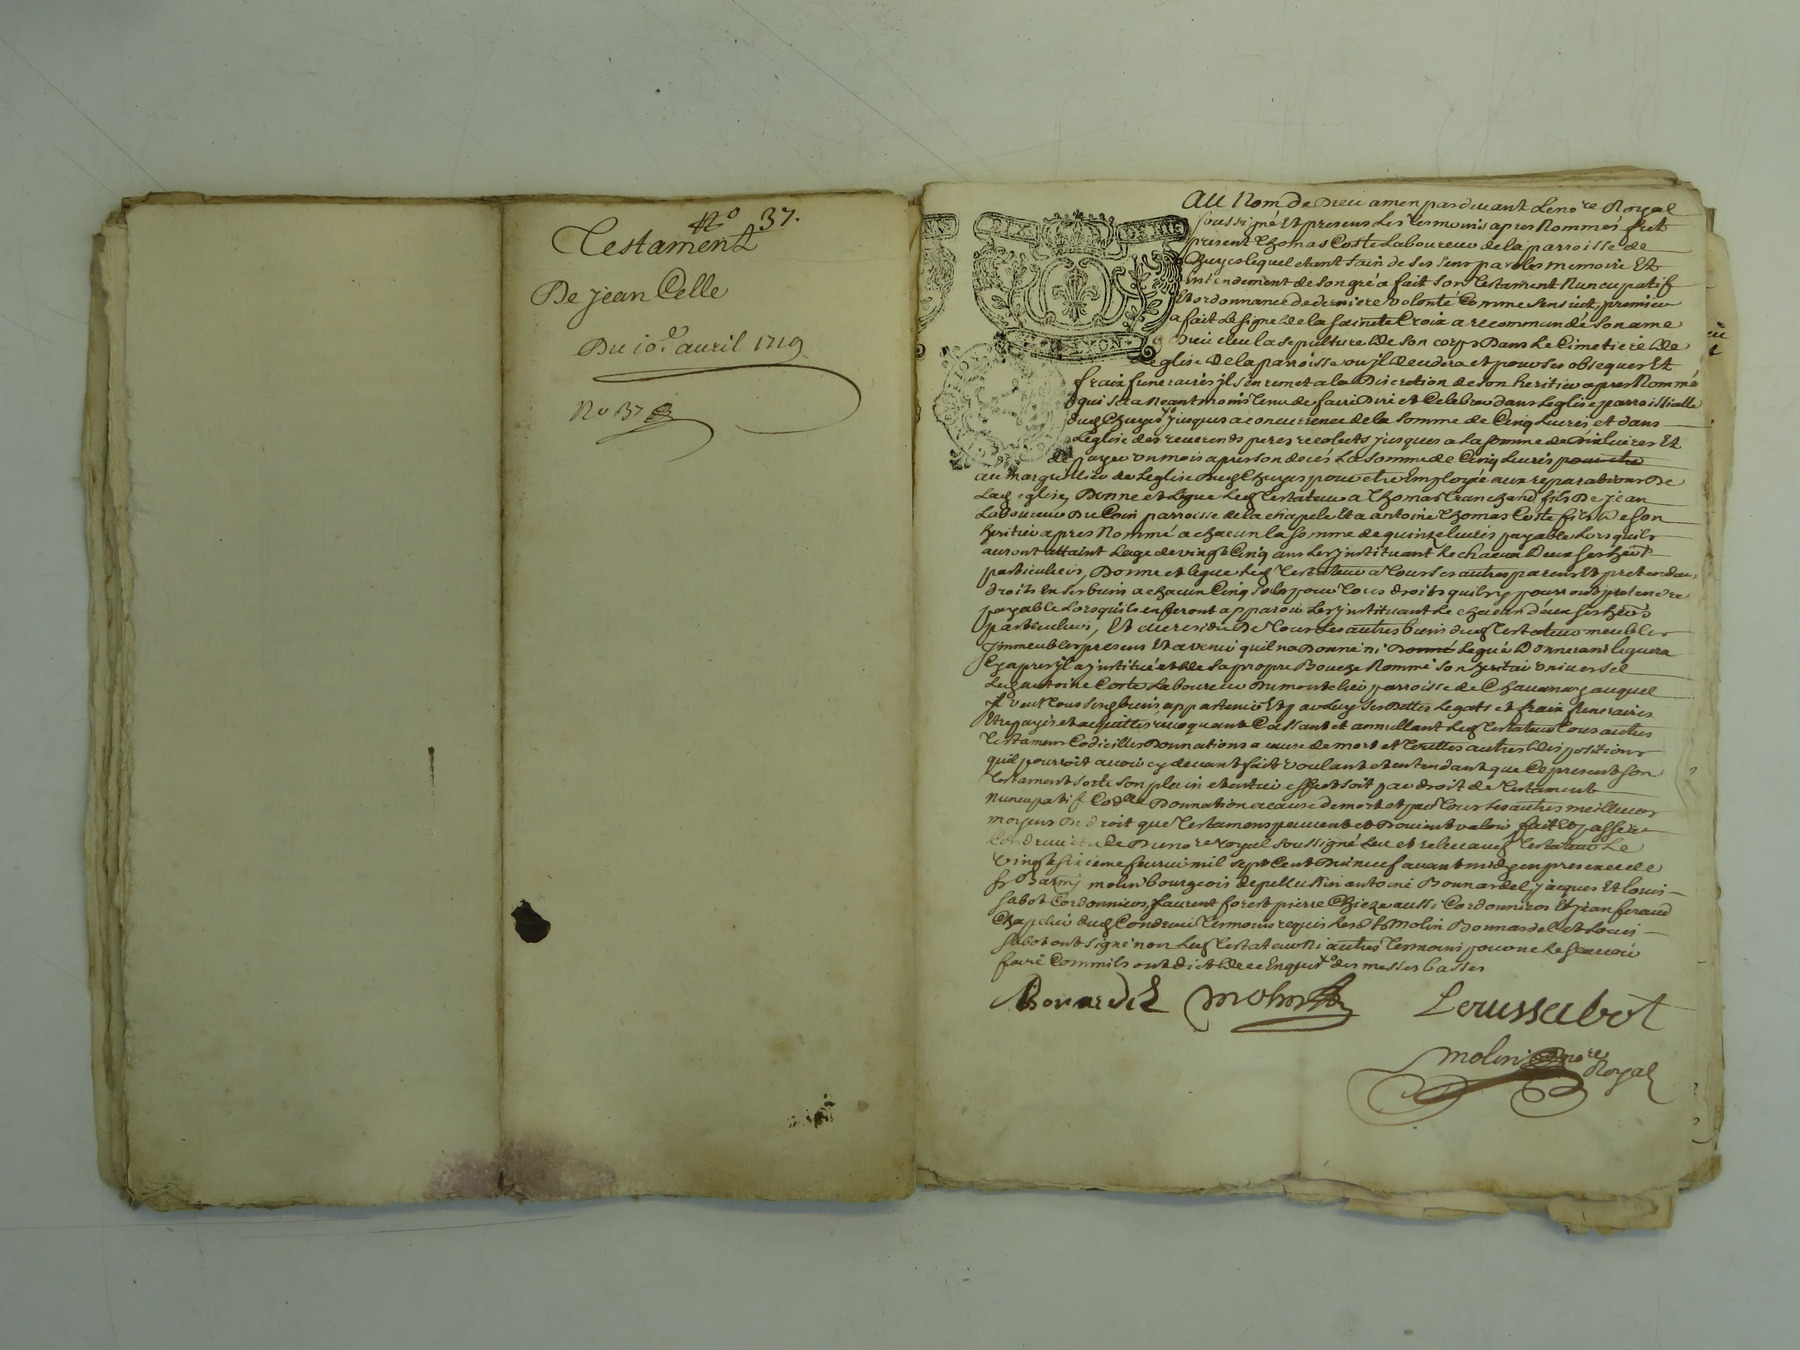 No 37.
Testament
De Jean Celle
Du 10e auril 1719
No 37
LYON
Au Nom de Dieu amen pardeuant Le nore Royal
soussigné Et presens Les tesmoins apres Nommés fut
present Thomas Coste Laboureur de la parroisse de
Chuyes lequel etant sain de ses sens paroles memoire Et
entendement de son gré a fait son testament Nuncupatif
Et ordonnance de derniere volonté Comme sensuit, premier
a fait le signe de la sainete Croix a recommandé son ame
a Dieu eleu la sepulture de son corps Dans Le Cimetiere de
Leglise de la parroisse ou jl decedera et pour ses obseques Et
fraix funeraires jl s'en remet a la Discretion de son heritier apres Nommé
qui sera Neantmoins tenu de faire Dire et Celebrer dans Leglise parroissialle
dud Chuyes jusques a concurrence de la somme de Cinq Liures et dans
Leglise des reuerends peres recolects jusques a la somme de Dix Liures Et
de payer un mois apres son decés La somme de Cinq Liures pour etre
au marguillier de Leglise dud Chuyes pour etre Employée aux reparations De
Lad eglise, Donne et Legue Led Testateur a Thomas tranchand fils De jean
Laboureur Du Coin parroisse de la chapele Et a antoine Thomas Coste fils de son
heritier apres Nommé a chacun la somme de quinze liures payable Lors quils
auront attaint Lage de vingt Cinq ans Les jnstituant Le chacun Deux ses hers
particuliers, Donne et legue Led Testateur a tous ses autres parens Et pretendans
droits En ses biens a chacun Cinq sols pour tous droits quils y pourroient pretendre
payable Lors quils en feront apparoir Les jnstituant Le chacun deux ses hers
particuliers, Et au residu De tous Les autres biens dud Testateur meubles
Jmmeubles presens Et a venir quil na Donné ni Donné Legué Donnera ni leguera
Cy apres jl a jnstitué et de sa propre Bouche Nommé son heritier vniuersel
Led antoine Coste Laboureur Du montelier parroisse de Chauanay auquel
jl veut tous sesd biens appartenir Et par luy ses Dettes Legats et fraix funeraires
Etre payés et acquittés reuoquant Cassant et annullant Led Testateur tous autres
Testamens Codicilles Donnations a cause de mort et touttes autres dispositions
quil pourroit auoir cy deuant fait voulant et entendant que Ce present son
Testament sorte son plein et entier effet soit par droit de Testament
nuncupatif Codlle Donnation a cause de mort et par tous Les autres meilleurs
moyens De droit que Testamens peuuent et Doiuent valoir fait Et passé a
Condrieu Etude Du nore royal soussigné Leu et releu aud Testateur Le
Vingt sixieme feurier mil sept Cent Dix neuf auant midy en presence de
sr Barmy molin bourgeois de pellussin antoine Bonnardel jacques Et louis
sabot Cordonniers, Laurent forest pierre Chieze aussi Cordonniers Et jean feraud
Chapelier dud Condrieu tesmoins requis Lesd srs Molin Bonnardel et Louis
sabot ont signé non Led Testateur Ni autres Temoins pour ne le scauoir
faire Comm'ils ont dict de ce Enquis des messes basses
Bonardel molin Louis sabot
molin nore
Royal